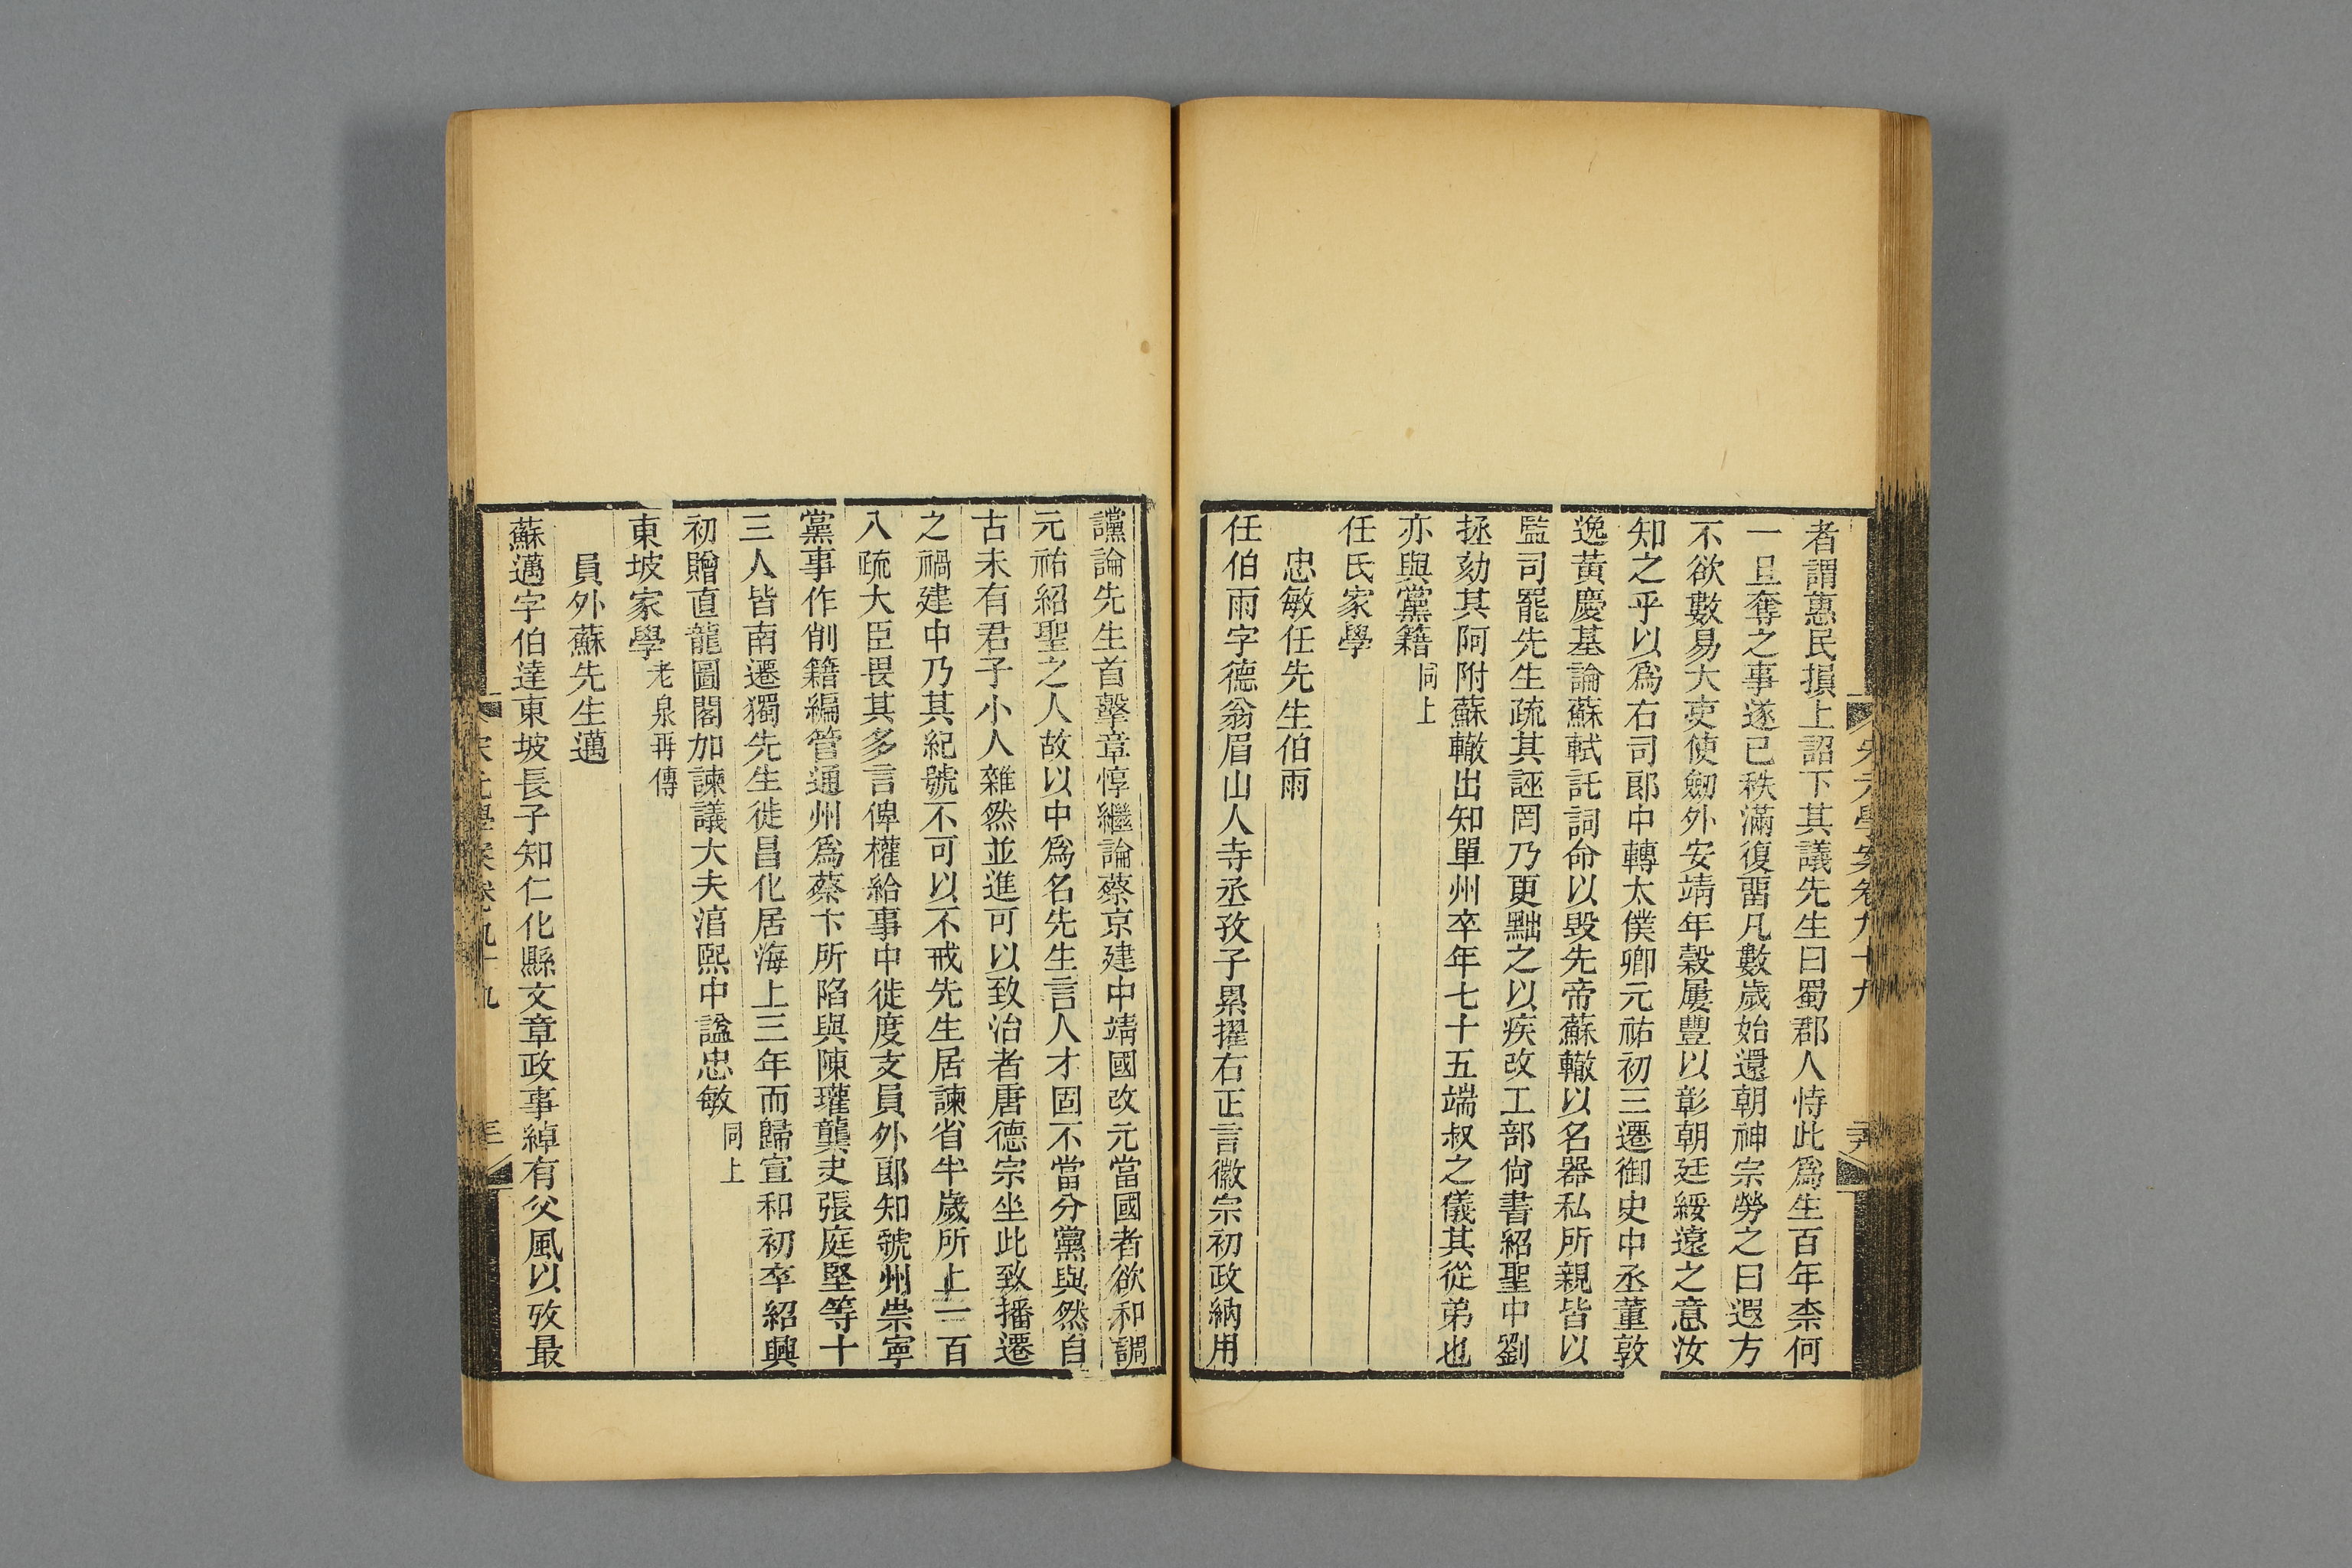 宋元學案卷九十九
者謂惠民損上詔下其議先生曰蜀郡人恃此爲生百年柰何
一旦奪之事遂已秩滿復畱凡數歲始還朝神宗勞之曰遐方
不欲數易大吏使劒外安靖年穀屢豐以彰朝廷綏遠之意汝
知之乎以爲右司郎中轉太僕卿元祐初三遷御史中丞董敦
逸黃慶基論蘇軾託詞命以毀先帝蘇轍以名器私所親皆以
監司罷先生疏其誣罔乃更黜之以疾改工部尙書紹聖中劉
拯劾其阿附蘇轍出知單州卒年七十五端叔之儀其從弟也
亦與黨籍同上
任氏家學
忠敏任先生伯雨
任伯雨字德翁眉山人寺丞孜子累擢右正言徽宗初政納用
讜論先生首擊章惇繼論蔡京建中靖國改元當國者欲和調
元祐紹聖之人故以中爲名先生言人才固不當分黨與然自
古未有君子小人雜然並進可以致治者唐德宗坐此致播遷
之禍建中乃其紀號不可以不戒先生居諫省半歲所上一百
八疏大臣畏其多言俾權給事中徙度支員外郎知虢州崇寧
黨事作削籍編管通州爲蔡卞所陷與陳瓘龔夬張庭堅等十
三人皆南遷獨先生徙昌化居海上三年而歸宣和初卒紹興
初贈直龍圖閣加諫議大夫淳熙中諡忠敏同上
東坡家學老泉再傳
員外蘇先生邁
蘇邁字伯達東坡長子知仁化縣文章政事綽有父風以攷最
宋元學案卷九十九